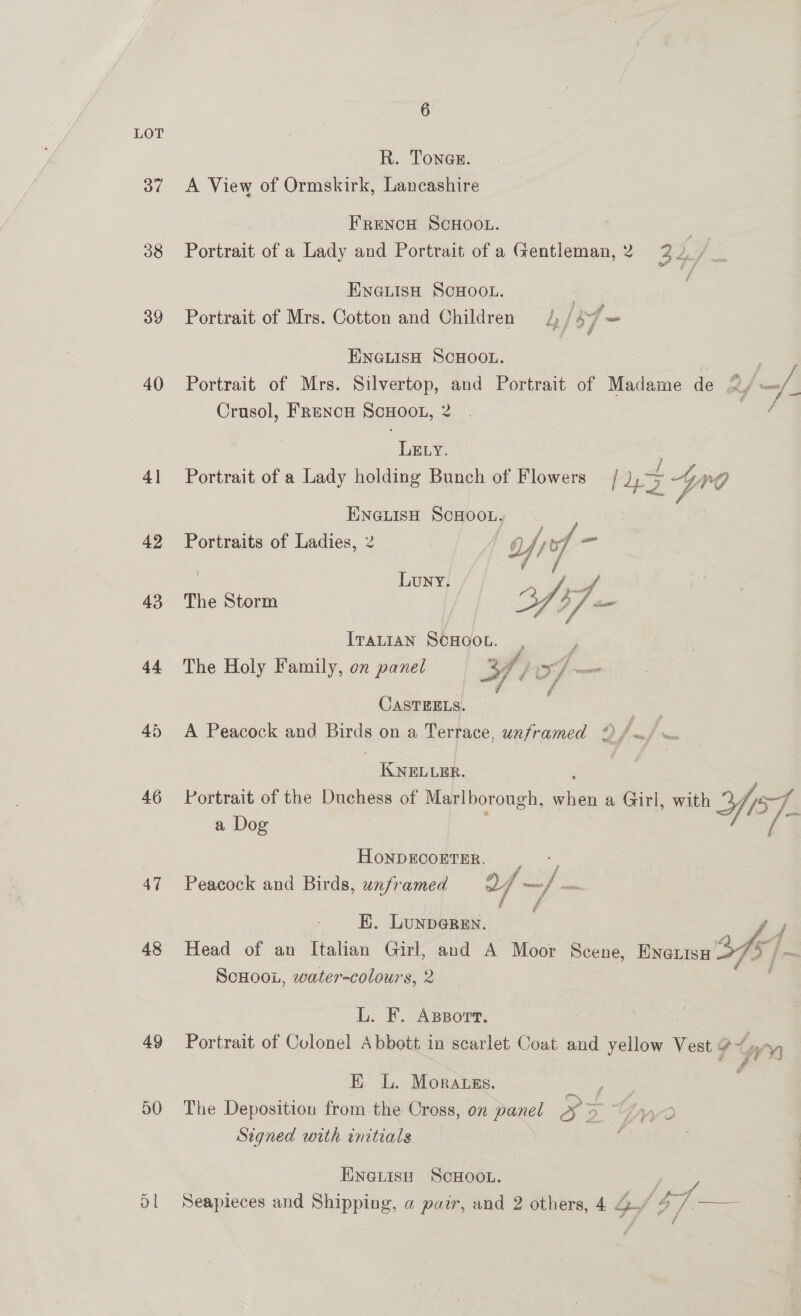 6
LOT
R. TONGE.
37 A View of Ormskirk, Lancashire
FRENCH SCHOOL.
38 Portrait of a Lady and Portrait of a Gentleman, 2
ENGLISH SCHOOL.
39 Portrait of Mrs. Cotton and Children
ENGLISH SCHOOL.
40 Portrait of Mrs. Silvertop, and Portrait of Madame de
Crusol, FRENCH SCHOOL, 2
LELY.
41 Portrait of a Lady holding Bunch of Flowers
ENGLISH SCHOOL.
42 Portraits of Ladies, 2
LUNY.
43 The Storm
ITALIAN SCHOOL.
44 The Holy Family, on panel
CASTEELS.
45 A Peacock and Birds on a Terrace, unframed
KNELLER.
46 Portrait of the Duchess of Marlborough, when a Girl, with
a Dog
HONDECOETER.
47 Peacock and Birds, unframed
E. LUNDGREN.
48 Head of an Italian Girl, and A Moor Scene, ENGLISH
SCHOOL, water-colours, 2
L. F. ABBOTT.
49 Portrait of Colonel Abbott in scarlet Coat and yellow Vest
E L. MORALES.
50 The Deposition from the Cross, on panel
Signed with initials
ENGLISH SCHOOL.
51 Seapieces and Shipping, a pair, and 2 others, 4